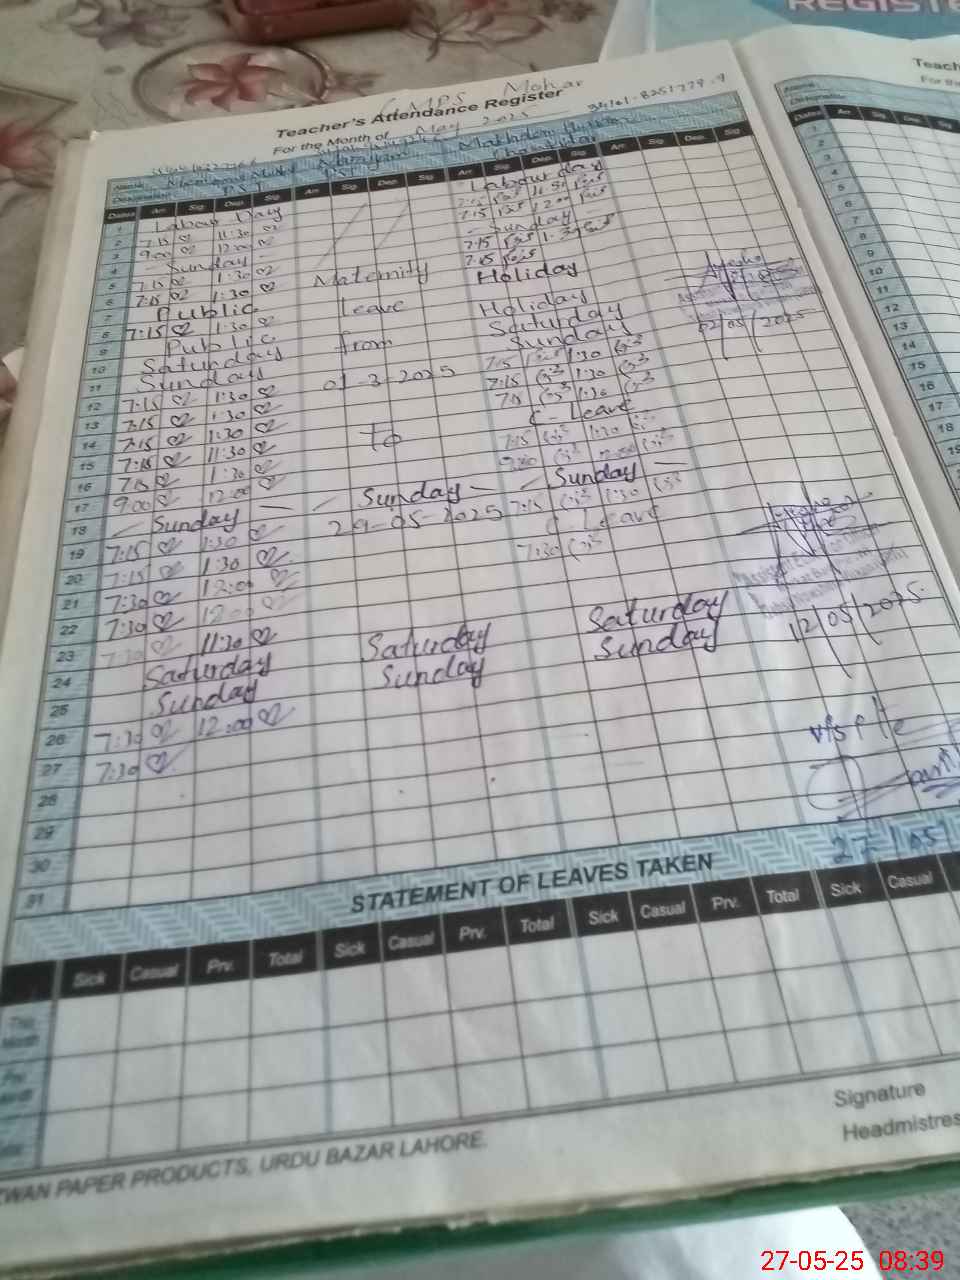 REGISTE
GMPS Mohar
Teacher's Attendance Register
For the Month of May 2025
34101-8251779-9
Name
Designation PST PST
Dates Arr. Sig. Dep. Sig. Arr. Sig. Dep. Sig. Arr. Sig. Dep. Sig. Arr. Sig. Dep. Sig.
1 Labour Day Labour day
2 7:15 11:30 7:15 11:30
3 9:00 12:00 7:15 12:00
4 - Sunday - - Sunday
5 7:15 1:30 7:15 1:30
6 7:15 1:30 Maternity 7:15
7 Public Holiday
8 7:15 1:30 Leave
9 Public Holiday
10 Saturday from Saturday
11 Sunday Sunday
12 7:15 1:30 01-3-2025 7:15 1:30
13 7:15 1:30 7:15 1:30
14 7:15 1:30 To 7:15 1:30
15 7:15 11:30 C-Leave
16 7:15 1:30 7:15 1:30
17 9:00 12:00 9:00 12:00
18 - Sunday - - Sunday - - Sunday -
19 7:15 1:30 29-05-2025 7:15 1:30
20 7:15 1:30 C-Leave
21 7:30 12:00 7:30
22 7:30 12:00
23 7:30 11:30
24 Saturday Saturday Saturday
25 Sunday Sunday Sunday
26 7:30 12:00
27 7:30
28
29
30
31
02/05/2025
12/05/2025
27/05
STATEMENT OF LEAVES TAKEN
Sick Casual Prv. Total Sick Casual Prv. Total Sick Casual Prv. Total Sick Casual
This Month
Signature
Headmistres
ZWAN PAPER PRODUCTS, URDU BAZAR LAHORE.
Teach
For the
Name
Designation
Dates Arr. Sig. Dep. Sig
1
2
3
4
5
6
7
8
9
10
11
12
13
14
15
16
17
18
19
27-05-25 08:39